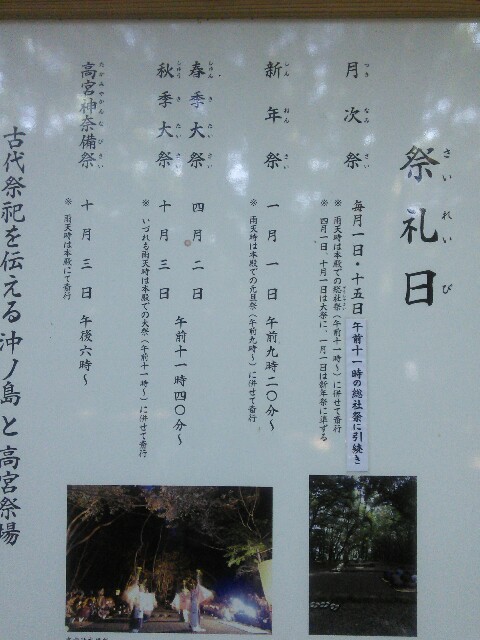 祭礼日
さいれいび
月次祭
つきなみさい
毎月一日・十五日 午前十一時の総社祭に引続き
※ 雨天時は本殿での総社祭（午前十一時〜）に併せて斎行
※ 四月一日、十月一日は大祭に、一月一日は新年祭に準ずる
新年祭
しんねんさい
一月一日 午前九時二〇分〜
※ 雨天時は本殿での元旦祭（午前九時〜）に併せて斎行
春季大祭
しゅんきたいさい
四月二日
秋季大祭
しゅうきたいさい
十月三日
午前十一時四〇分〜
※ いづれも雨天時は本殿での大祭（午前十一時〜）に併せて斎行
高宮神奈備祭
たかみやかんなびさい
十月三日 午後六時〜
※ 雨天時は本殿にて斎行
古代祭祀を伝える沖ノ島と高宮祭場